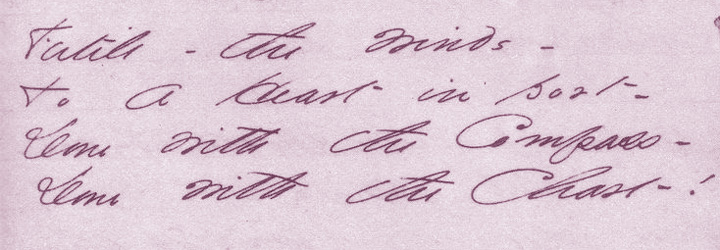 Futile - the winds -
To a Heart in port -
Done with the Compass -
Done with the Chart - !